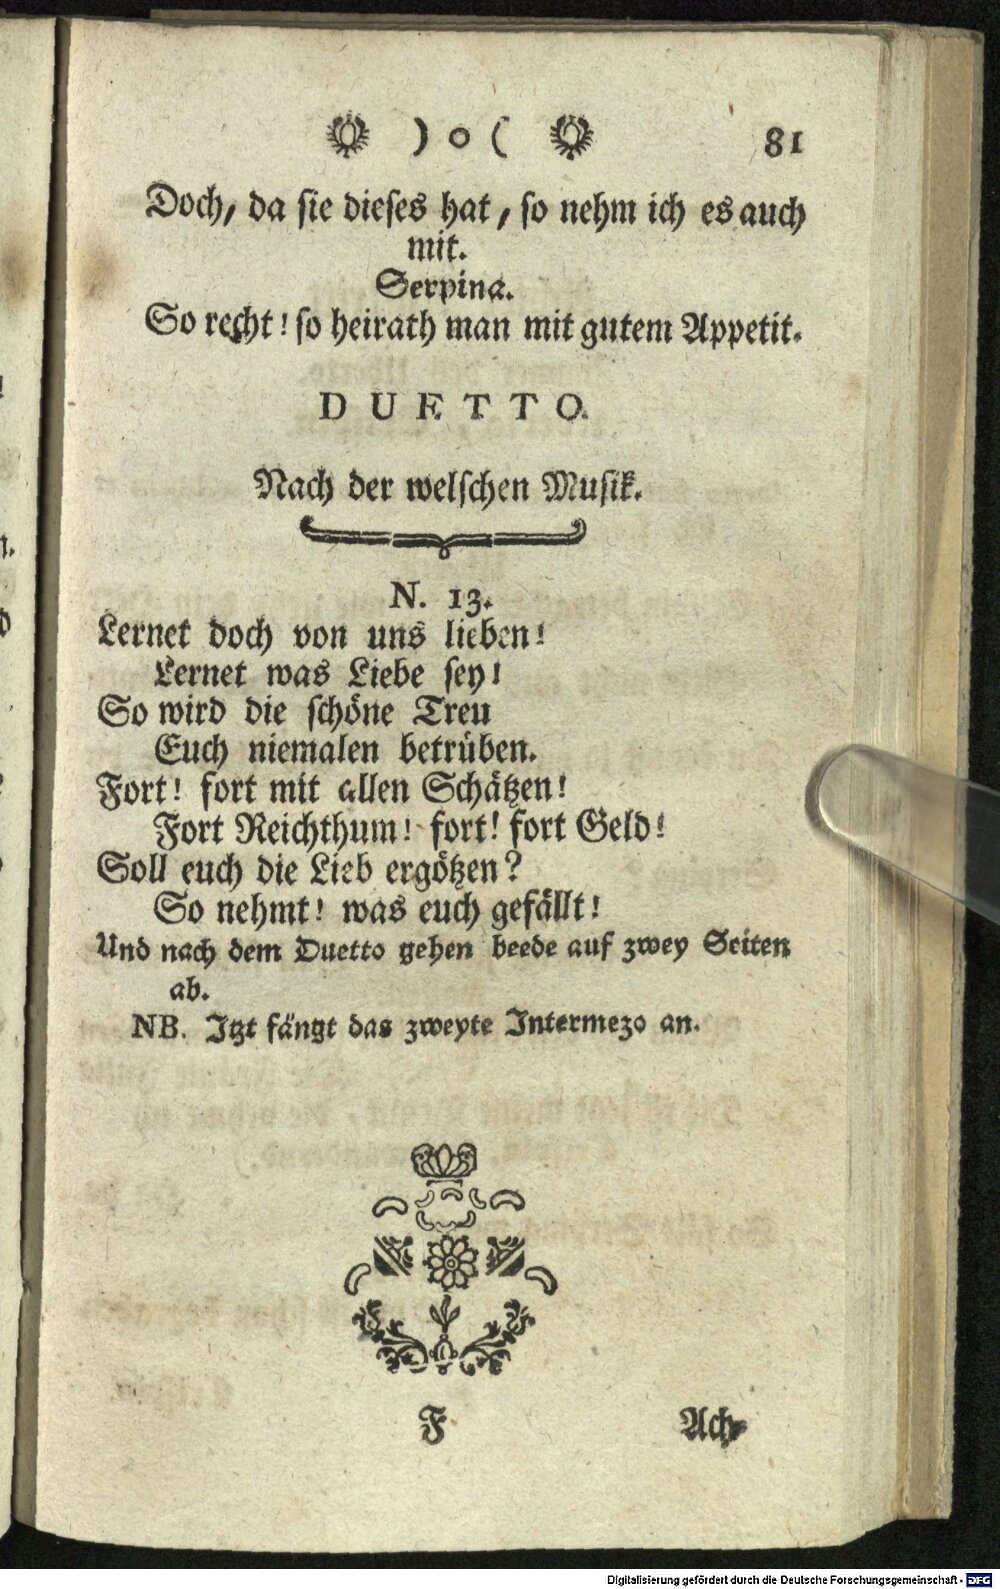 ) o ( 81
Doch, da sie dieses hat, so nehm ich es auch
mit.
Serpina.
So recht! so heirath man mit gutem Appetit.
DUETTO.
Nach der welschen Musik.
N. 13.
Lernet doch von uns lieben!
Lernet was Liebe sey!
So wird die schöne Treu
Euch niemalen betrüben.
Fort! fort mit allen Schätzen!
Fort Reichthum! fort! fort Geld!
Soll euch die Lieb ergötzen?
So nehmt! was euch gefällt!
Und nach dem Duetto gehen beede auf zwey Seiten
ab.
NB. Itzt fängt das zweyte Intermezo an.
F Ach-
Digitalisierung gefördert durch die Deutsche Forschungsgemeinschaft - DFG